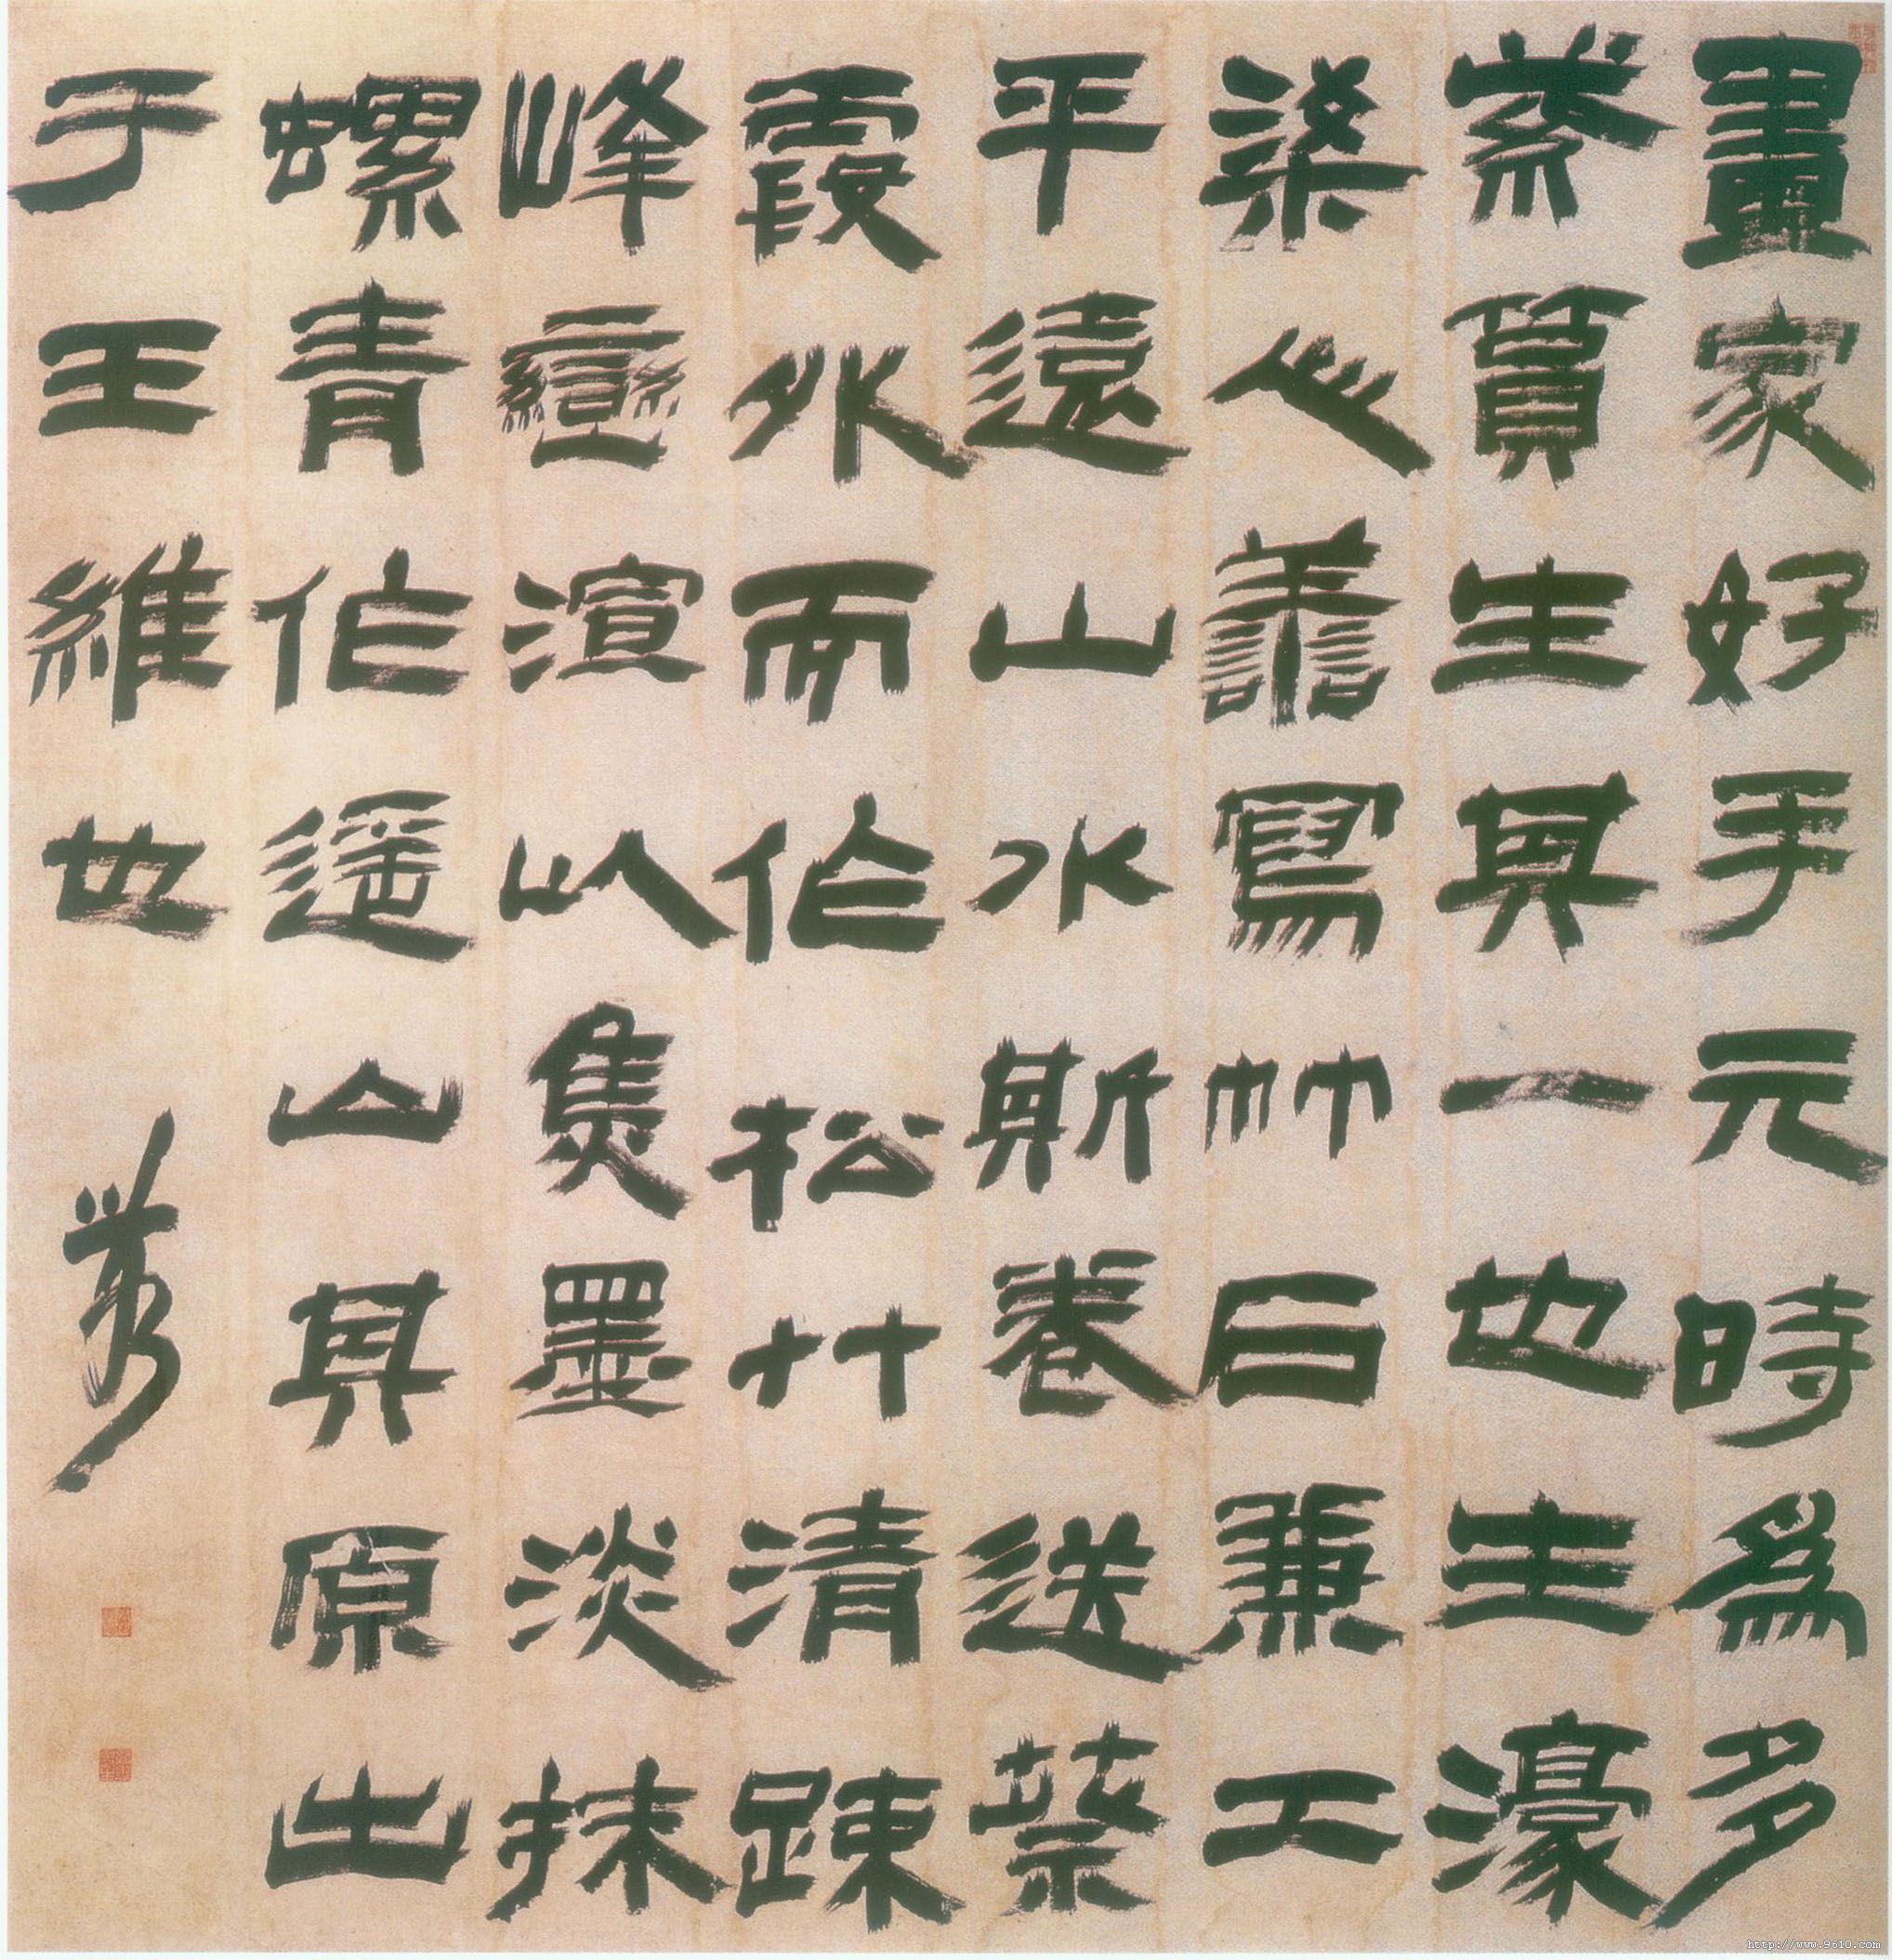 畫家好手元時爲多
蕢生其一也生濠
梁心譱寫竹石兼工
平遠山水斯卷送
霞外而作松艸清疎
峰巒渲以焦墨淡抹
螺青作遥山其原出
于王維也
http://www.9610.com